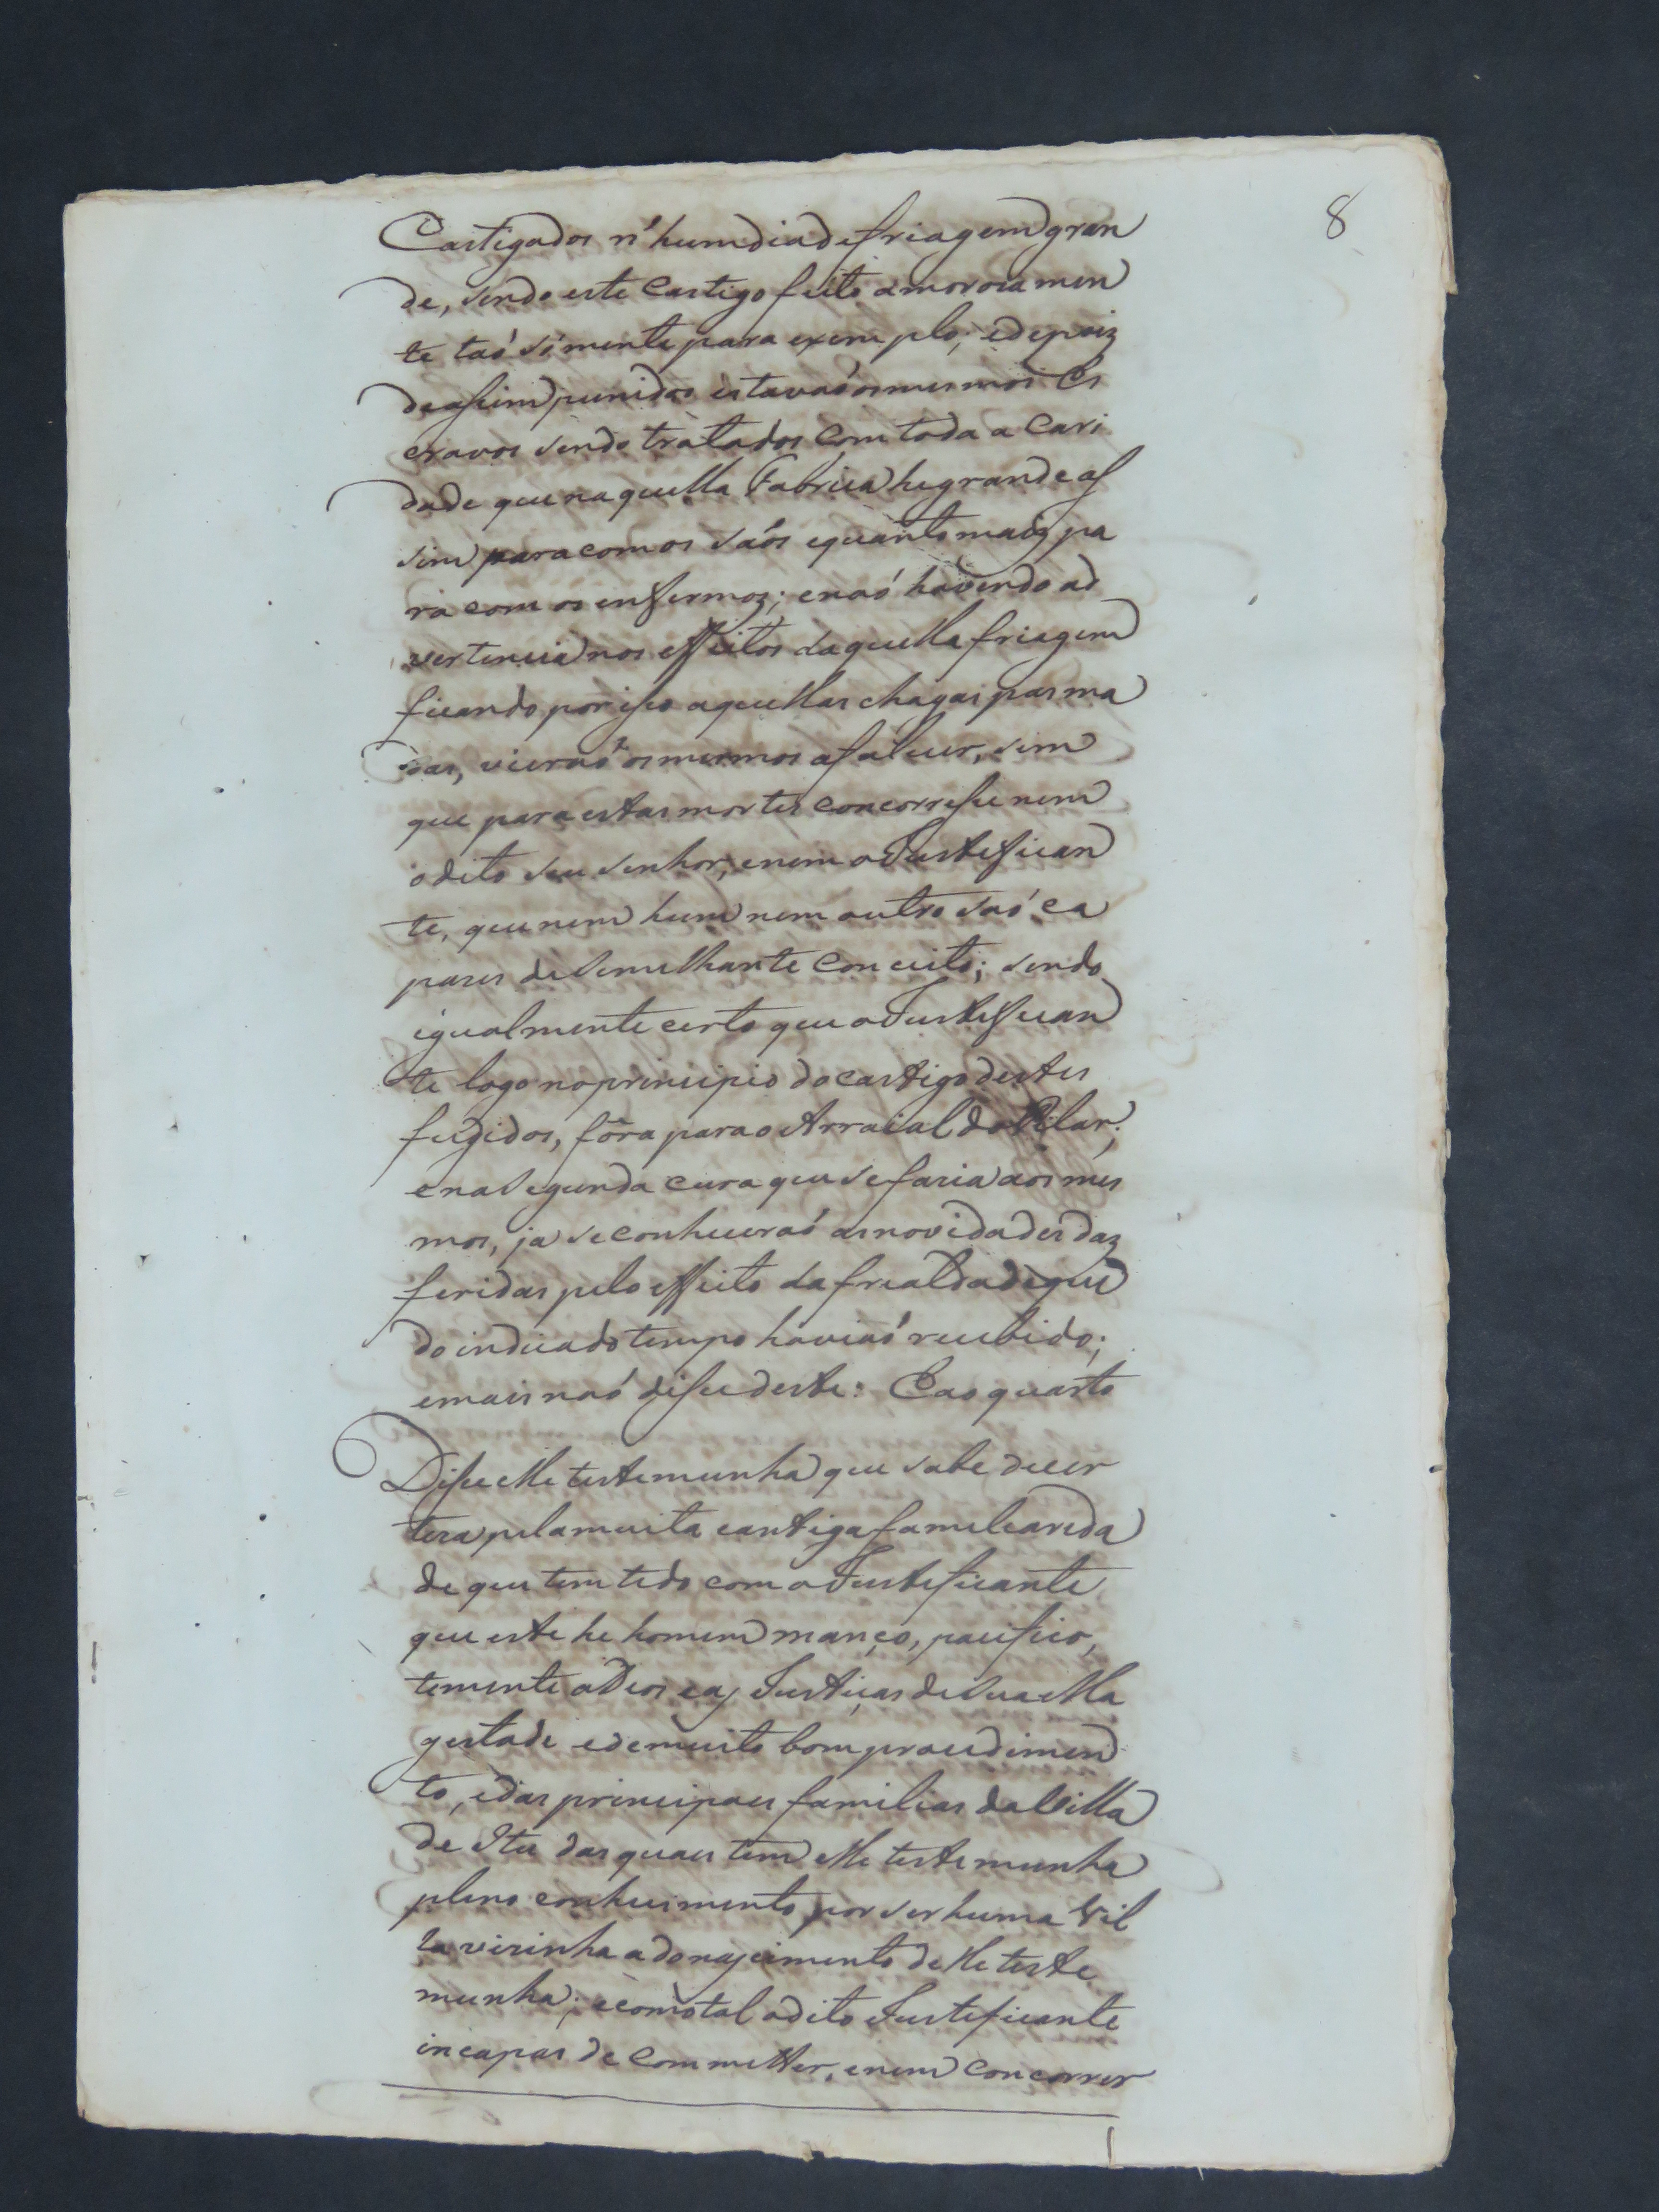 8
Castigados n'hum dia de friagem gran
de, sendo este Castigo feito amorosamen
te taó sómente para exemplo; e depoiz
de assim punidos estavaó os mesmos Es
cravos sendo tratados Com toda a Cari
dade que naquella Fabrica he grande as
sim para com os sáos e quanto maiz pa
ra com os enfermoz; e naó havendo ad
vertencia nos effeitos daquella friagem
ficando por isso aquellas chagas pasma
das, vieraó os mesmos a falecer, sem
que para estas mortes concorresse nem
o dito seu senhor, e nem o Justefican
te, que nem hum nem outro saó ca
pazes de Semelhante Conceito; sendo
igualmente certo que o Justefican
te logo no principio do castigo destes
fugidos, fôra para o Arraial do Pilar;
e na Segunda cura que se fazia aos mes
mos, ja se conheceraó as novidades daz
feridas pelo effeito da frialdade que
do indicado tempo haviaó recebido;
e mais naó disse deste: E ao quarto
Disse elle testemunha que sabe de cer
teza pela muita e antiga familiarida
de que tem tido com o Justeficante
que este he homem manço, pacifico,
temente a Deos e as Justiças de Sua Ma
gestade e de muito bom procedimen
to, e das principaes familias da Villa
de Itu das quaes tem elle testemunha
pleno conhecimento por ser huma Vil
la vizinha a do nascimento delle teste
munha; e como tal o dito Justeficante
incapas de Commetter, e nem Concorrer